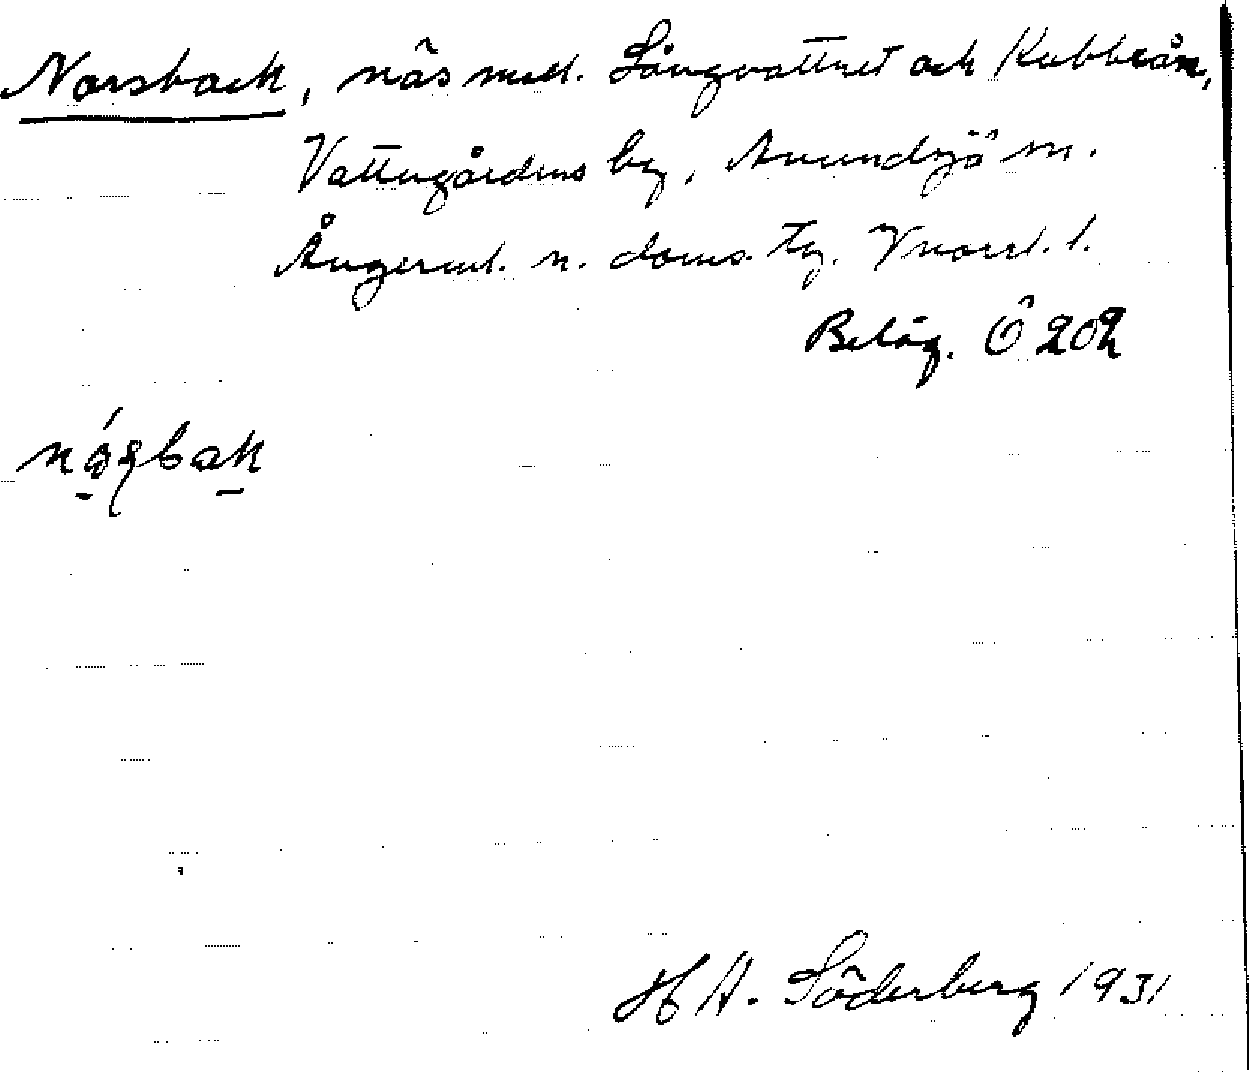 Norsback, näs mell. Långvattnet och Kubbeån,
Vattugårdens by, Anundsjö sn.
Ångerml. n. doms. tg. Vnorrl. l.
Beläg. Ö 202
H A. Söderberg 1931